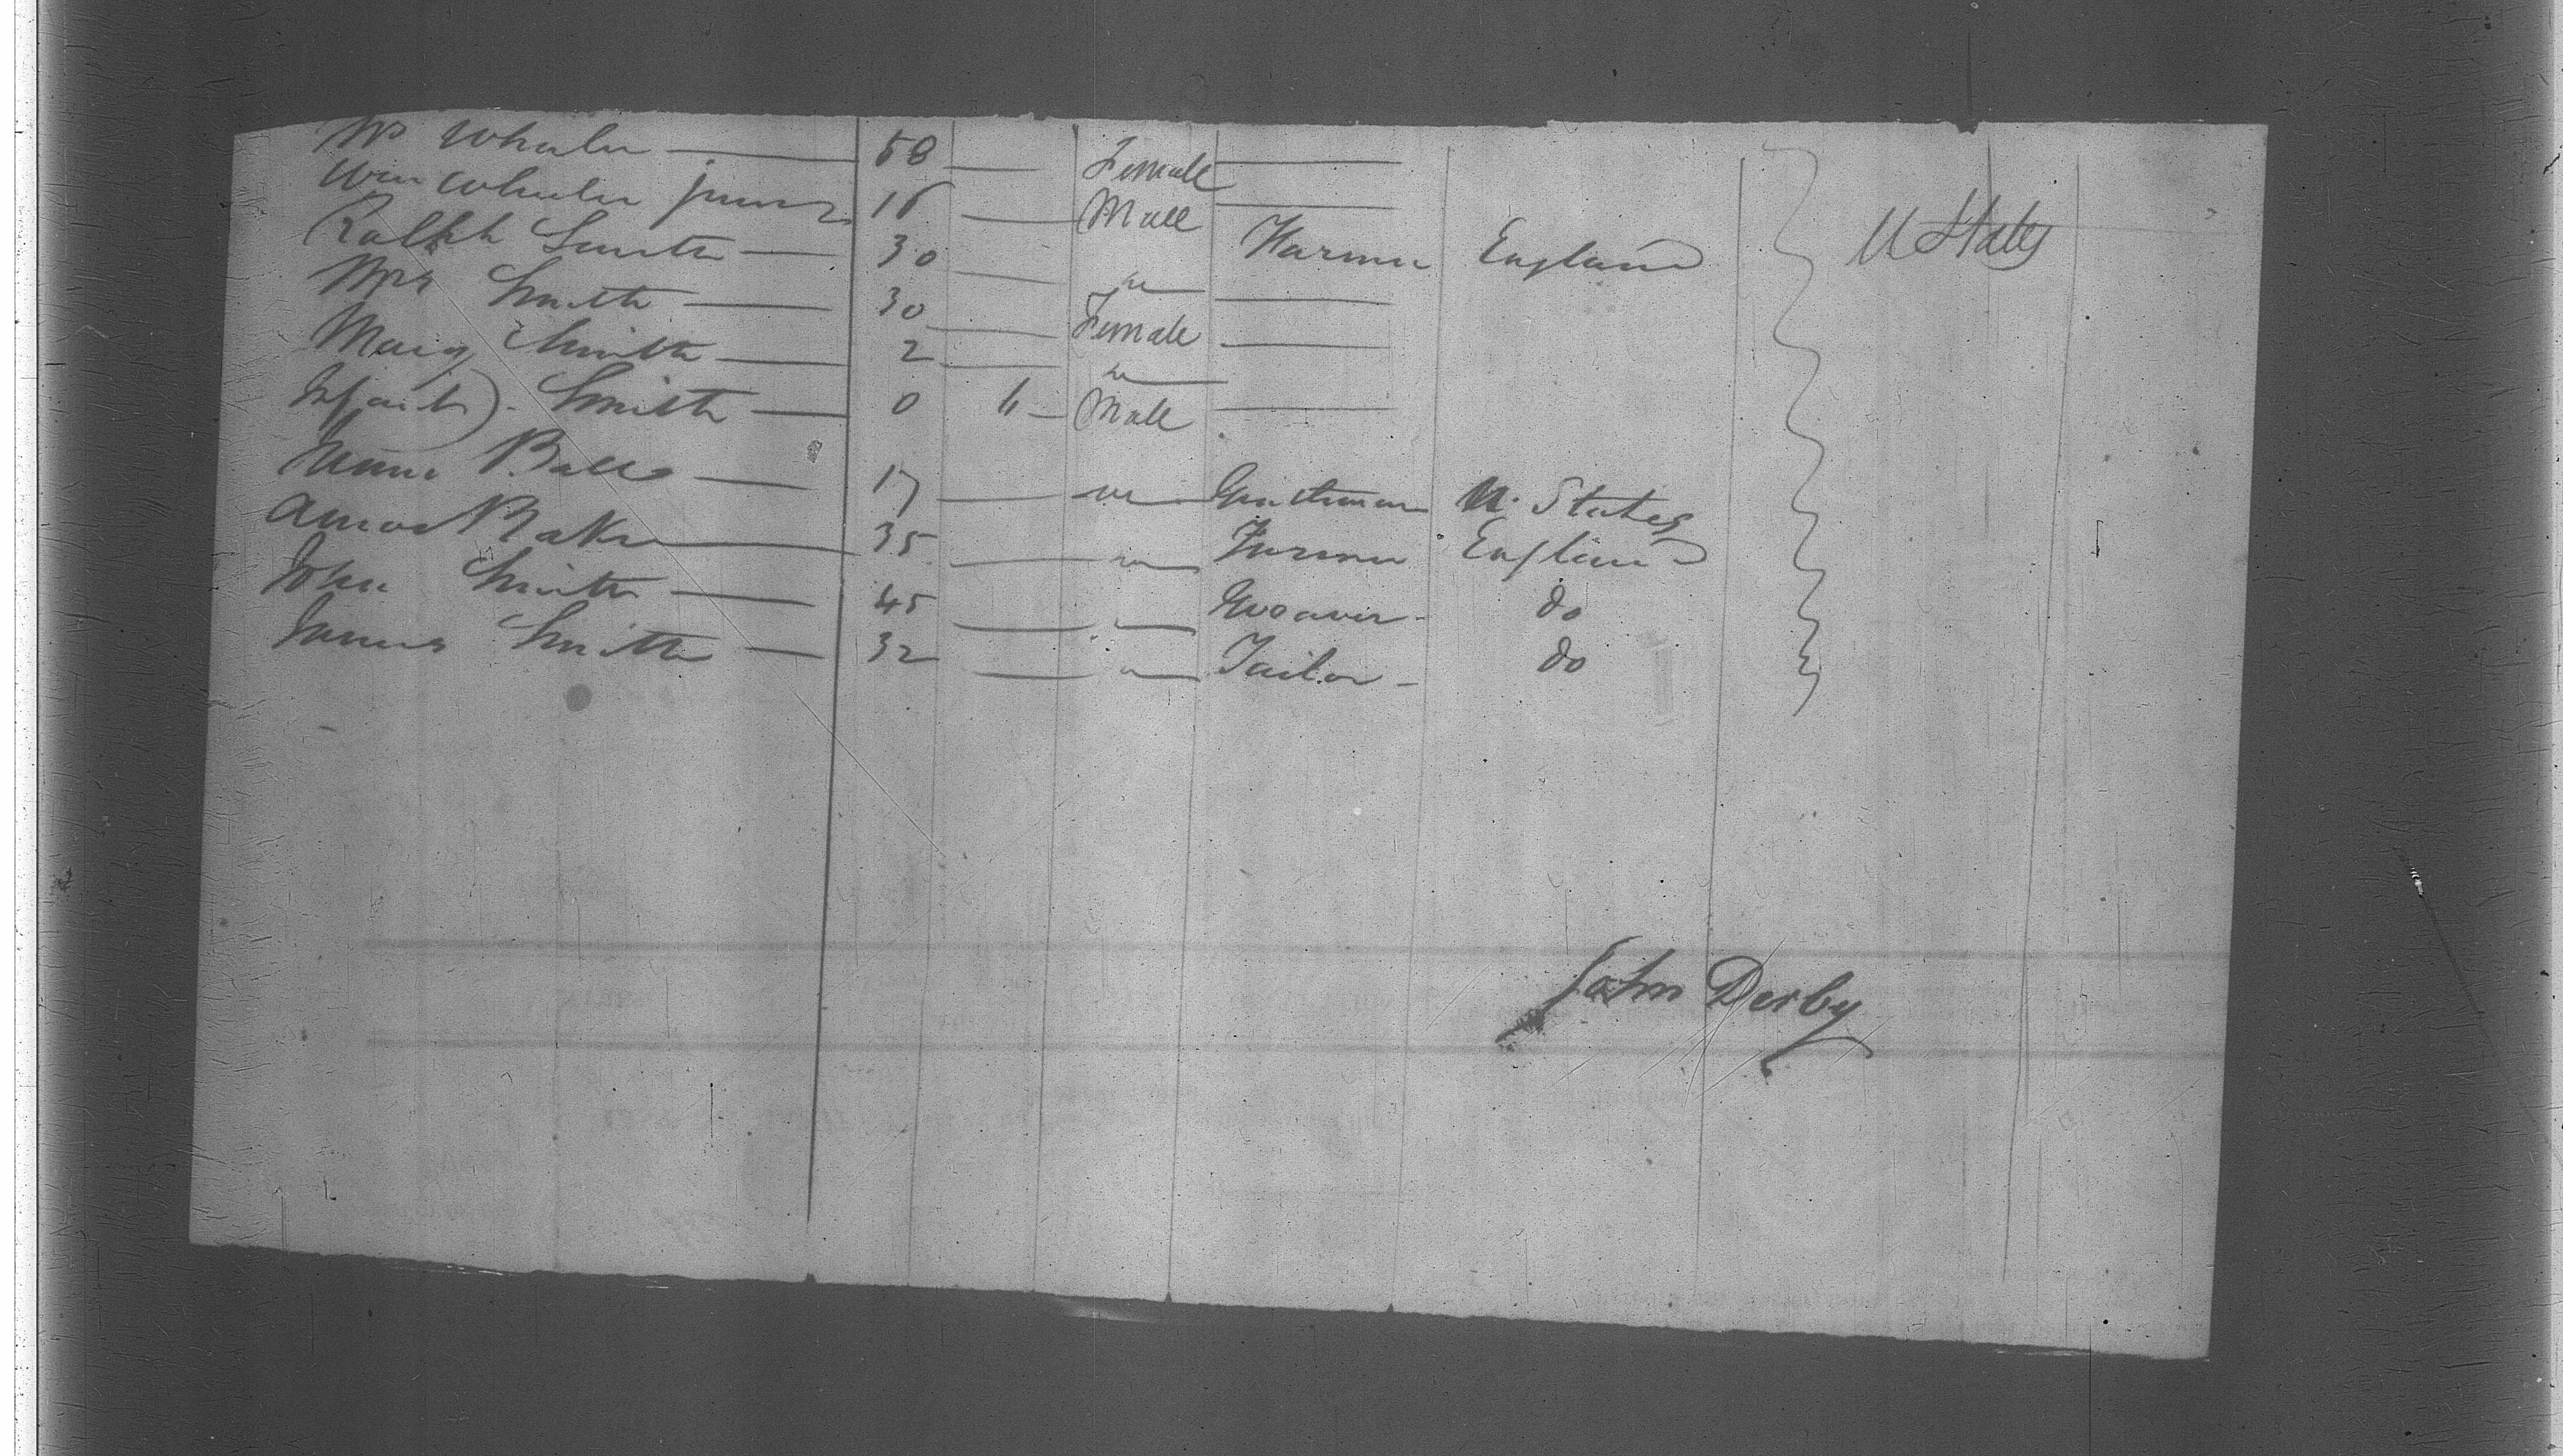 Mrs Wheeler — 58 — Female —
Wm Wheeler junr 16 — Male —
Ralph Smith — 30 — " — Farmer England U States
Mrs Smith — 30 — Female —
Mary Smith — 2 — " —
Infant) Smith — 0 6 — Male —
Balls — 17 — " — Gentleman U. States
Amos Baker — 35 — " — Farmer England
John Smith — 45 — " — Weaver - do
James Smith — 32 — " — Tailor - do
John Derby